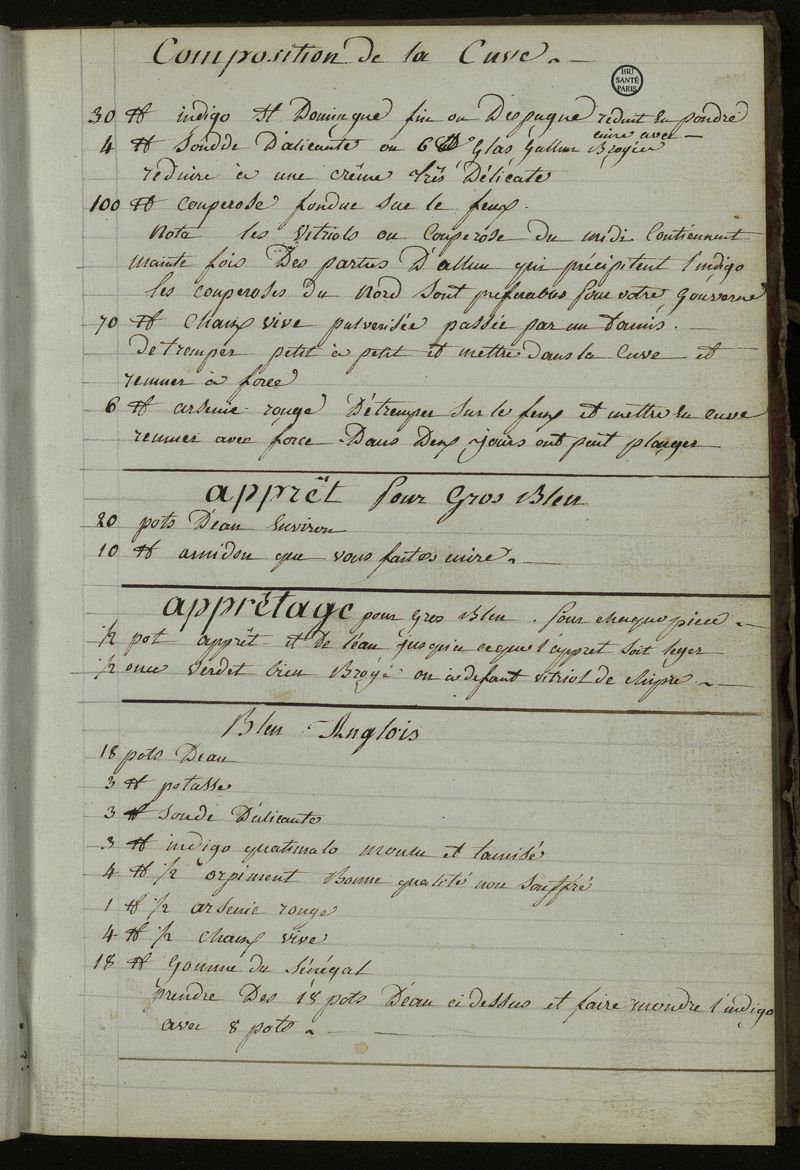 Composition de la Cuve. —
BIU
SANTÉ
PARIS
30 ℔ indigo St Domingue fin ou Despagne réduit En poudre
4 ℔ Soudde D'alicante ou 6 ℔ Glas Gallun cuire avec Broyier —
reduire à une crême très Délicate
100 ℔ couperose fondue sur le feux.
Nota les Vitriols ou Couperose du midi Contiennent
mainte fois Des parties D'allun qui précipitent l'indigo
les couperoses du Nord Sont preferables pour votre Gouverne
70 ℔ Chaux vive pulverisée passée par un Tamis.
détremper petit à petit et mettre dans la Cuve et
remuer à force
6 ℔ arsenic rouge Détremper sur le feux et mettre En cuve
remuer avec force Dans Deux jours ont peut plonger
apprêt pour Gros Bleu
20 pots D'eau Environ
10 ℔ amidon que vous faites cuire. —
apprêtage pour Gros Bleu. pour chaque piece —
½ pot apprêt et De l'eau jusqu'a ceque l'appret soit leger
½ once Verdet bien Broyé ou à defaut vitriol de chipre —
Bleu Anglois
18 pots Deau
3 ℔ potasse
3 ℔ Soude D'alicante
3 ℔ indigo quatimalo moulu et tamisé
4 ℔ ½ orpiment Bonne qualité non Souffré
1 ℔ ½ arsenic rouge
4 ℔ ½ chaux vive
18 ℔ Gomme du Sénégal
prendre Des 18 pots D'eau ci dessus et faire moudre l'indigo
avec 8 pots. —